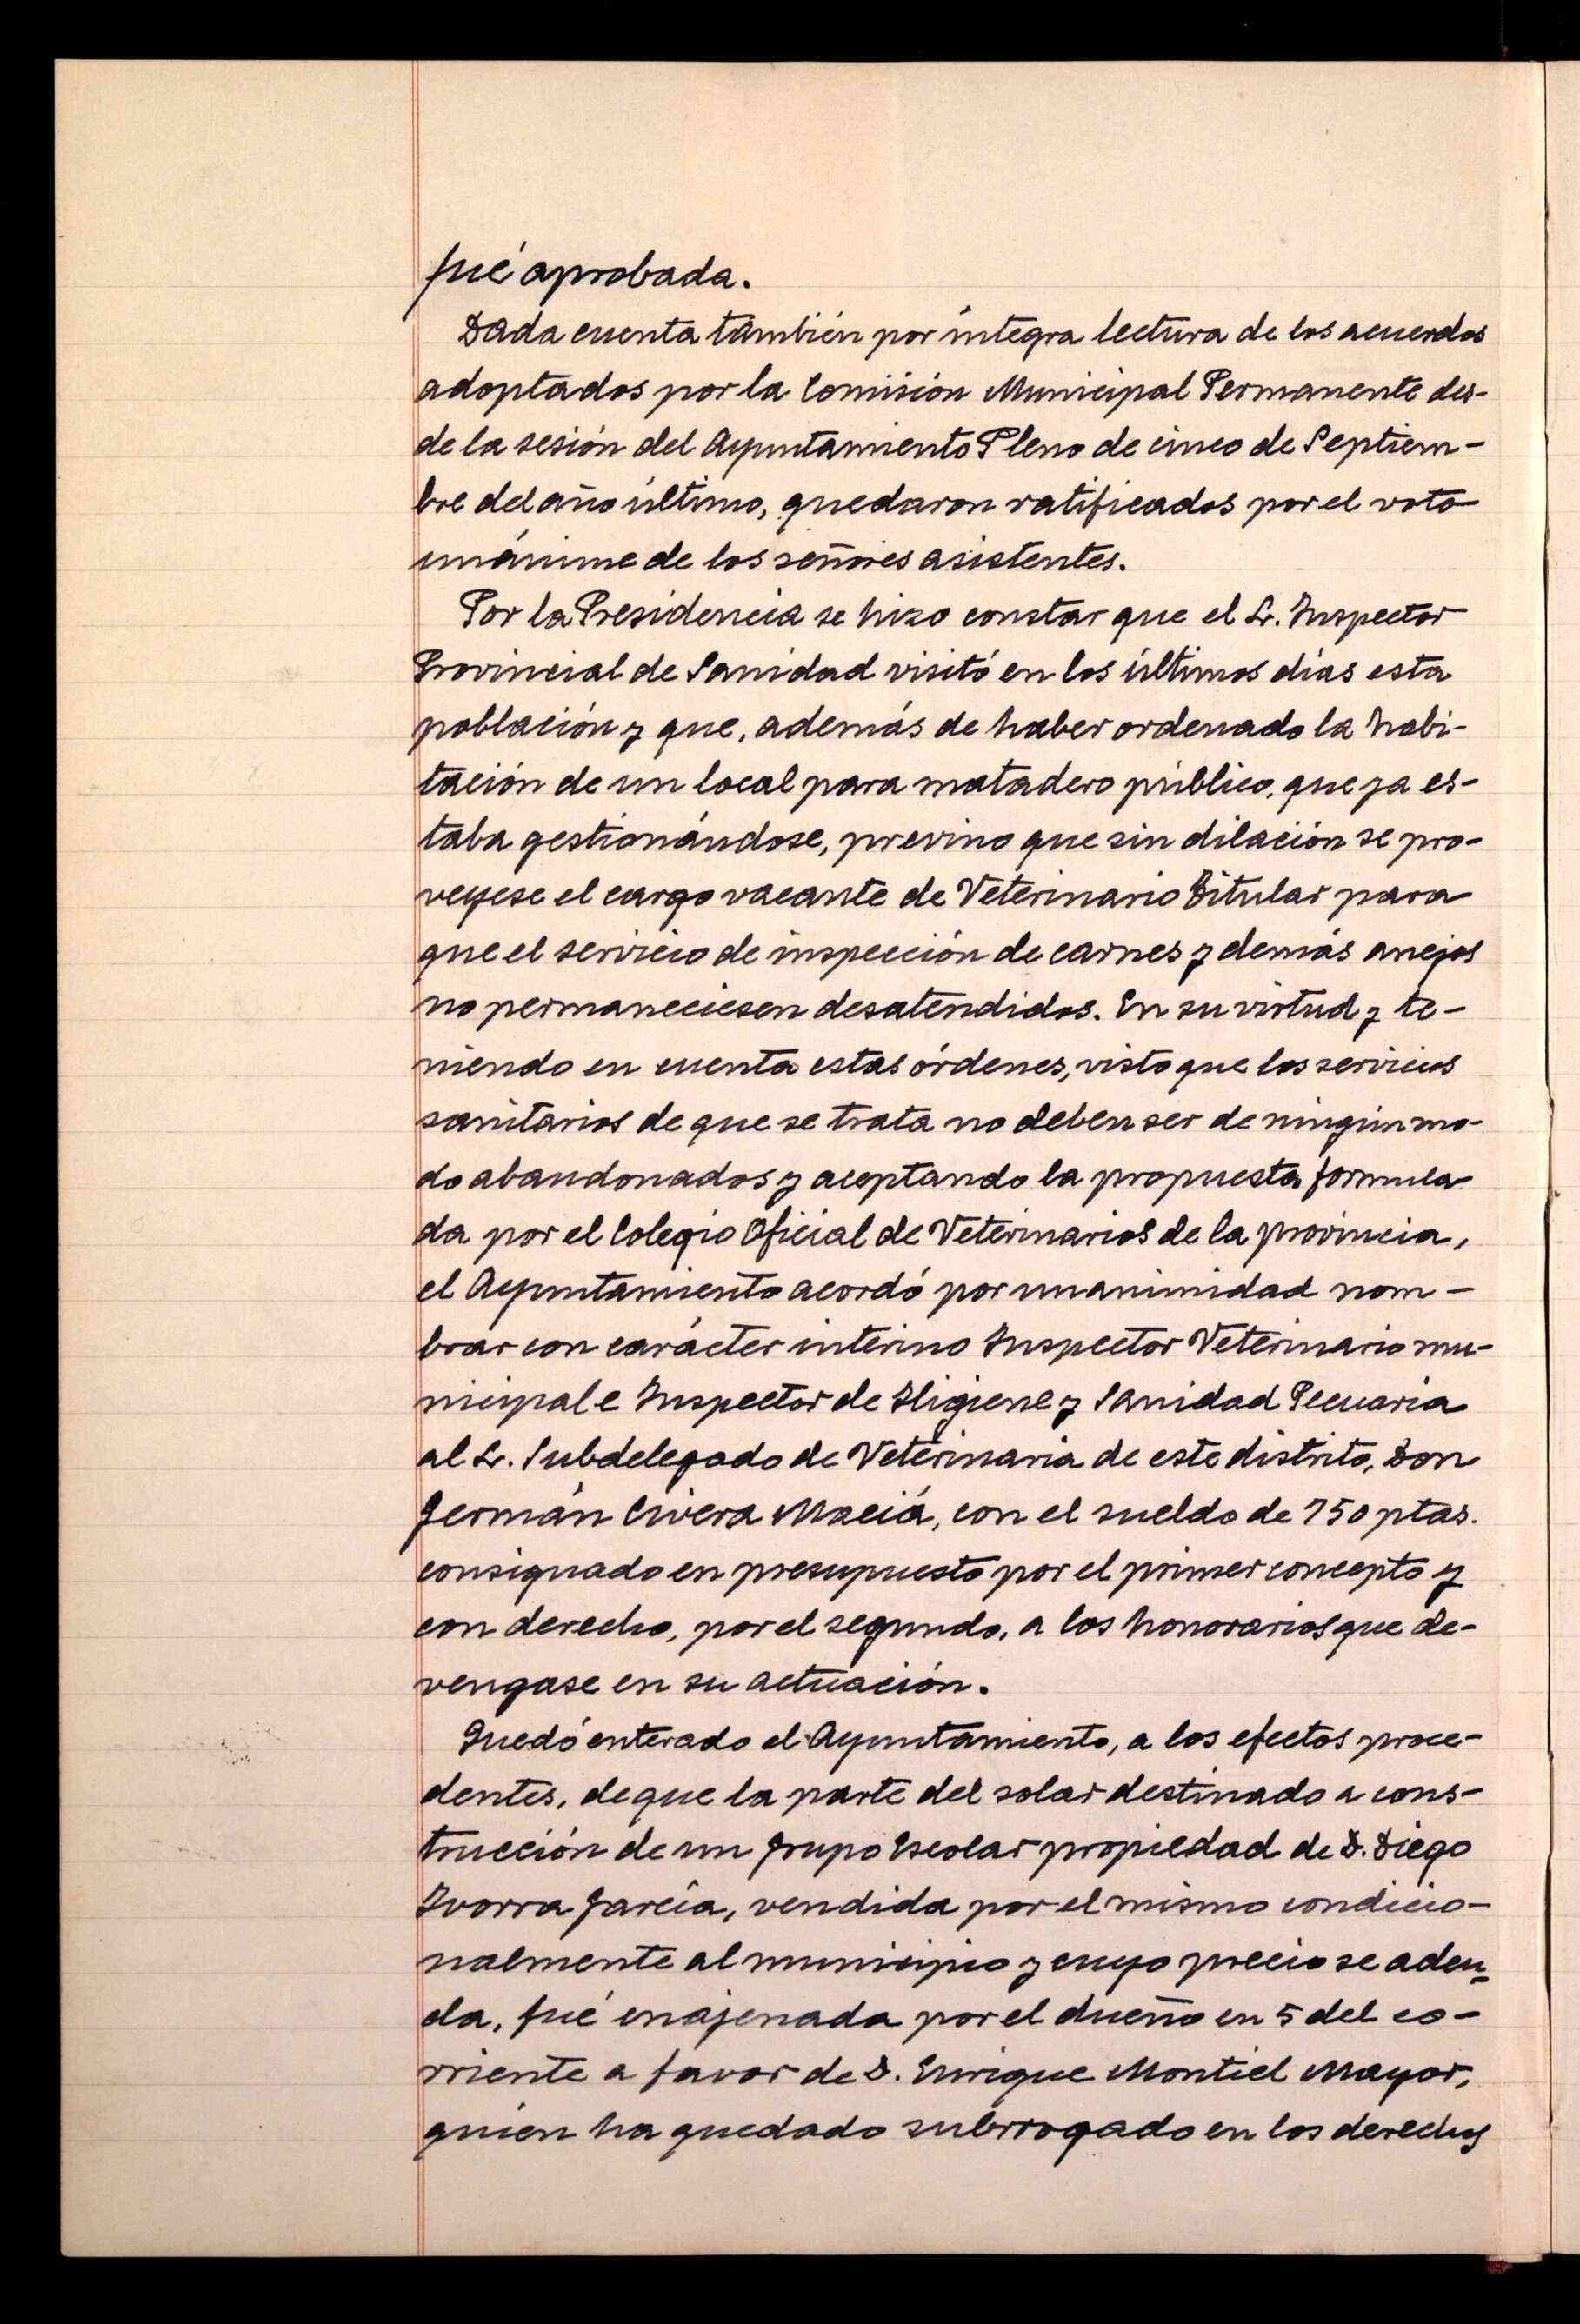 fué aprobada.
Dada cuenta también por íntegra lectura de los acuerdos
adoptados por la Comisión Municipal Permanente des-
de la sesión del Ayuntamiento Pleno de cinco de Septiem-
bre del año último, quedaron ratificados por el voto
unánime de los señores asistentes.
Por la Presidencia se hizo constar que el Sr. Inspector
Provincial de Sanidad visitó en los últimos días esta
población y que, además de haber ordenado la habi-
tación de un local para matadero público, que ya es-
taba gestionándose, previno que sin dilación se pro-
veyese el cargo vacante de Veterinario Titular para
que el servicio de inspección de carnes y demás anejos
no permaneciesen desatendidos. En su virtud y te-
niendo en cuenta estas órdenes, visto que los servicios
sanitarios de que se trata no deben ser de ningún mo-
do abandonados y aceptando la propuesta formula-
da por el Colegio Oficial de Veterinarios de la provincia,
el Ayuntamiento acordó por unanimidad nom-
brar con carácter interino Inspector Veterinario mu-
nicipal e Inspector de Higiene y Sanidad Pecuaria
al Sr. Subdelegado de Veterinaria de este distrito, Don
Germán Civera Maciá, con el sueldo de 750 ptas.
consignado en presupuesto por el primer concepto y
con derecho, por el segundo, a los honorarios que de-
vengase en su actuación.
Quedó enterado el Ayuntamiento, a los efectos proce-
dentes, de que la parte del solar destinado a cons-
trucción de un Grupo Escolar propiedad de D. Diego
Ivorra García, vendida por el mismo condicio-
nalmente al municipio y cuyo precio se adeu-
da, fué enajenada por el dueño en 5 del co-
rriente a favor de D. Enrique Montiel Mayor,
quien ha quedado subrrogado en los derechos